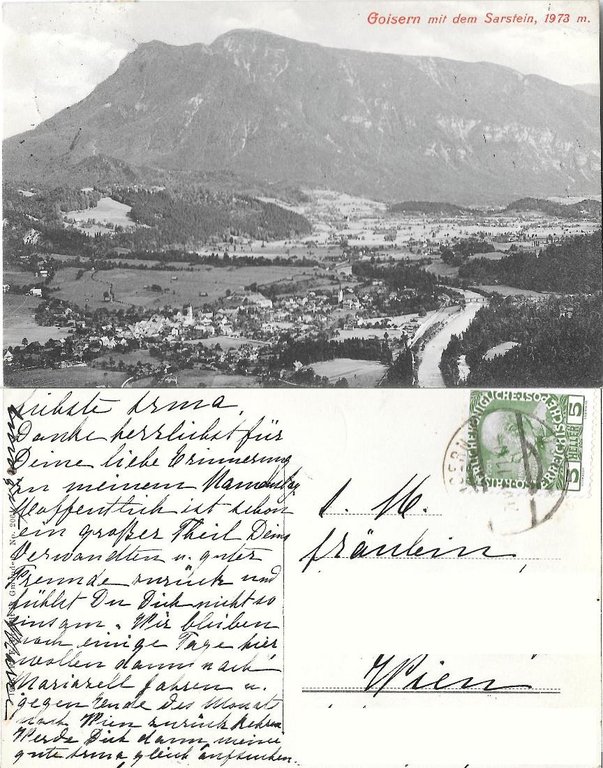 Goisern mit dem Sarstein, 1973 m.
Liebste Irma,
Danke herzlichst für
Deine liebe Erinnerung
an meinem Namenstag
Hoffentlich ist schon
ein großer Theil Deine
Verwandten u. guter
Freunde zurück und
fühlst Du Dich nicht so
einsam. Wir bleiben
noch einige Tage hier
wollen dann nach
Mariazell fahren u.
gegen Ende des Monats
nach Wien zurück kehren
Werde Dich dann meine
gute Irma gleich aufsuchen.
5
HELLER
5
Fräulein
Wien